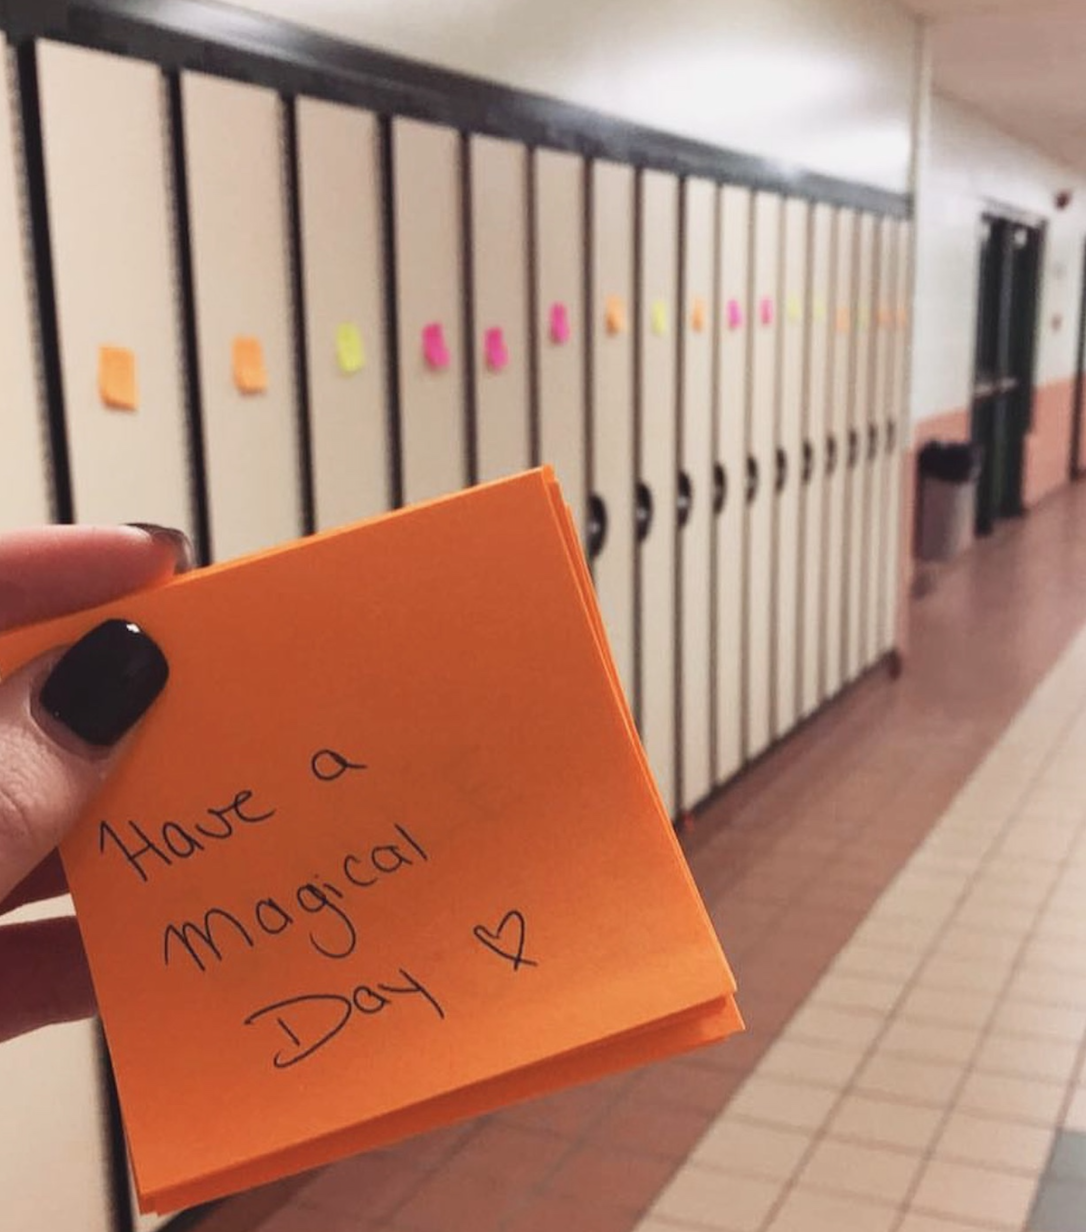 Have a
Magical
Day ♡